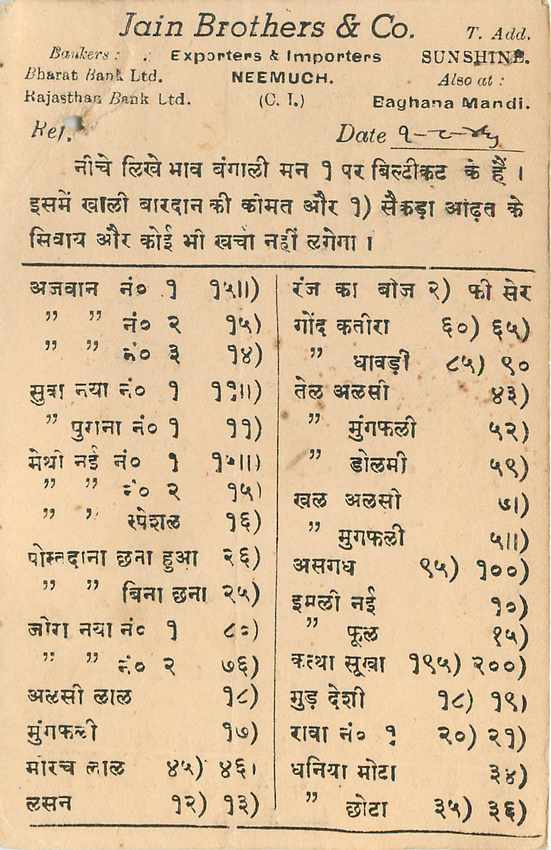 Jain Brothers & Co.
T. Add.
Bankers :
Exporters & Importers
SUNSHINE.
Bharat Bank Ltd.
NEEMUCH.
Also at :
Rajasthan Bank Ltd.
(C. I.)
Baghana Mandi.
Ref.
Date १-८-
नीचे लिखे भाव बंगाली मन १ पर बिल्टीकट के हैं ।
इसमें खाली बारदान की कीमत और १) सैकड़ा आढ़त के
सिवाय और कोई भी खर्चा नहीं लगेगा ।
अजवान नं० १ १५॥)
” ” नं० २ १५)
” ” नं० ३ १४)
सुवा नया नं० १ ११॥)
” पुराना नं० १ ११)
मेथी नई नं० १
” ” नं० २ १५)
” ” स्पेशल १६)
पोस्तदाना छना हुआ २६)
” ” बिना छना २५)
जीरा नया नं० १ ८०)
” ” नं० २ ७६)
अलसी लाल १८)
मुंगफली १७)
मीरच लाल ४५) ४६)
लसन १२) १३)
रंज का बीज २) फी सेर
गोंद कतीरा ६०) ६५)
” धावड़ी ८५) ९०
तेल अलसी ४३)
” मुंगफली ५२)
” डोलमी ५९)
खल अलसी ७।)
” मुगफली ५॥)
असगध ९५) १००)
इमली नई १०)
” फूल १५)
कत्था सूखा १९५) २००)
गुड़ देशी १८) १९)
रावा नं० १ २०) २१)
धनिया मोटा ३४)
” छोटा ३५) ३६)